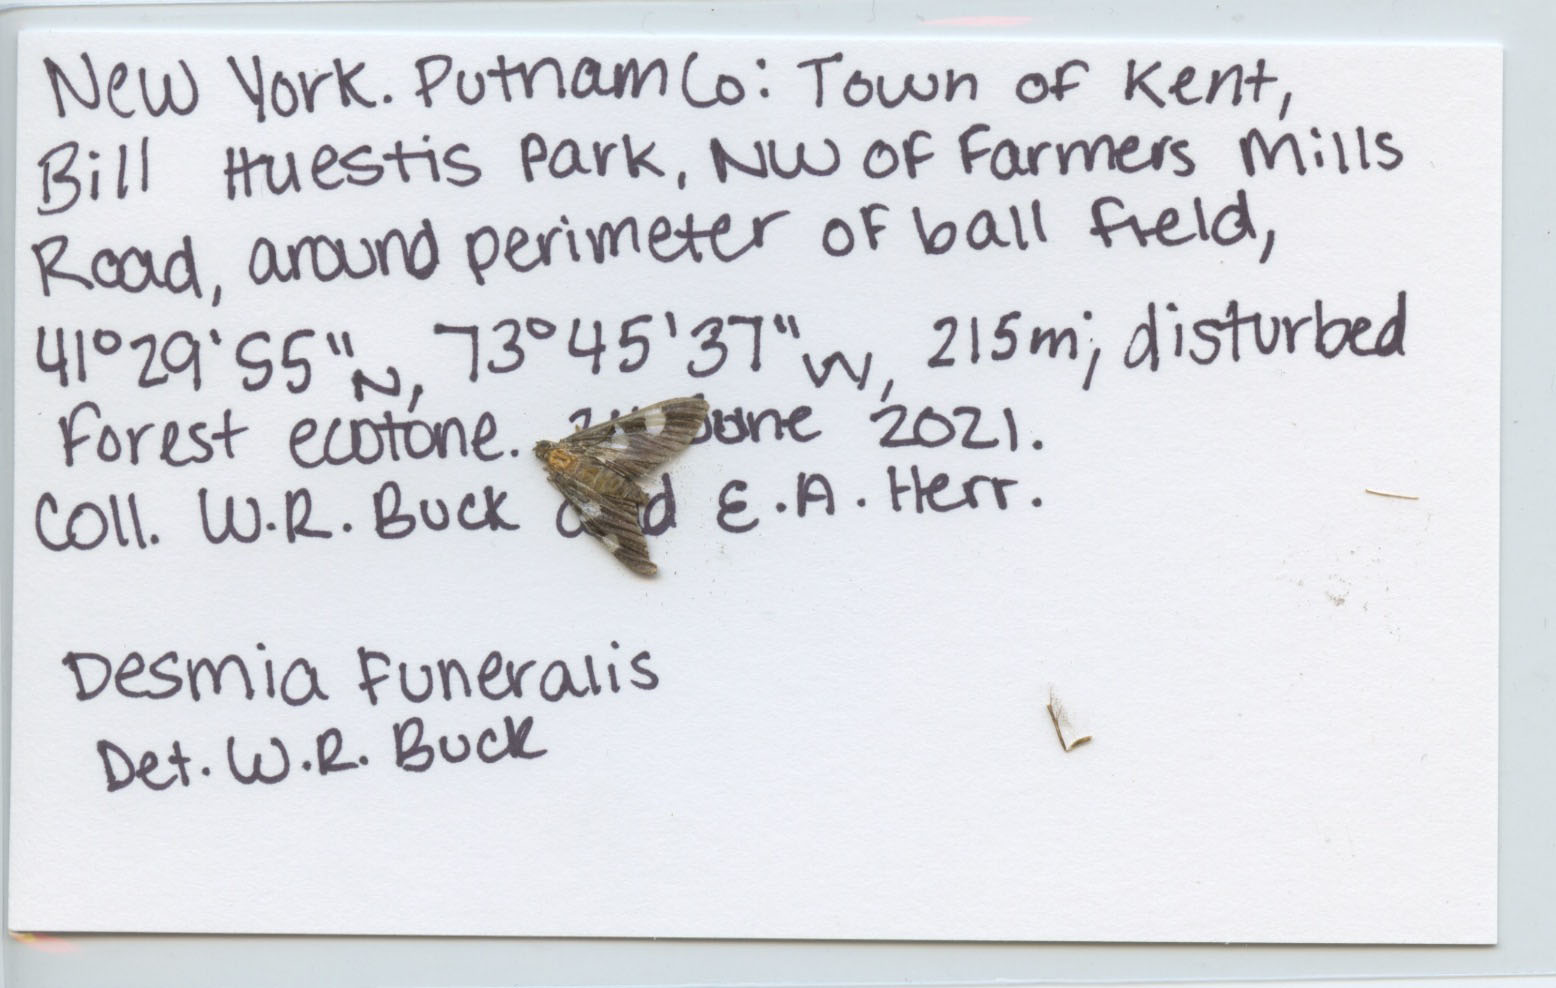 New York. Putnam Co: Town of Kent,
Bill Huestis Park, NW of Farmers Mills
Road, around perimeter of ball field,
41°29'55"N, 73°45'37"W, 215m; disturbed
forest ecotone. June 2021.
Coll. W.R. Buck and E.A. Herr.
Desmia Funeralis
Det. W.R. Buck